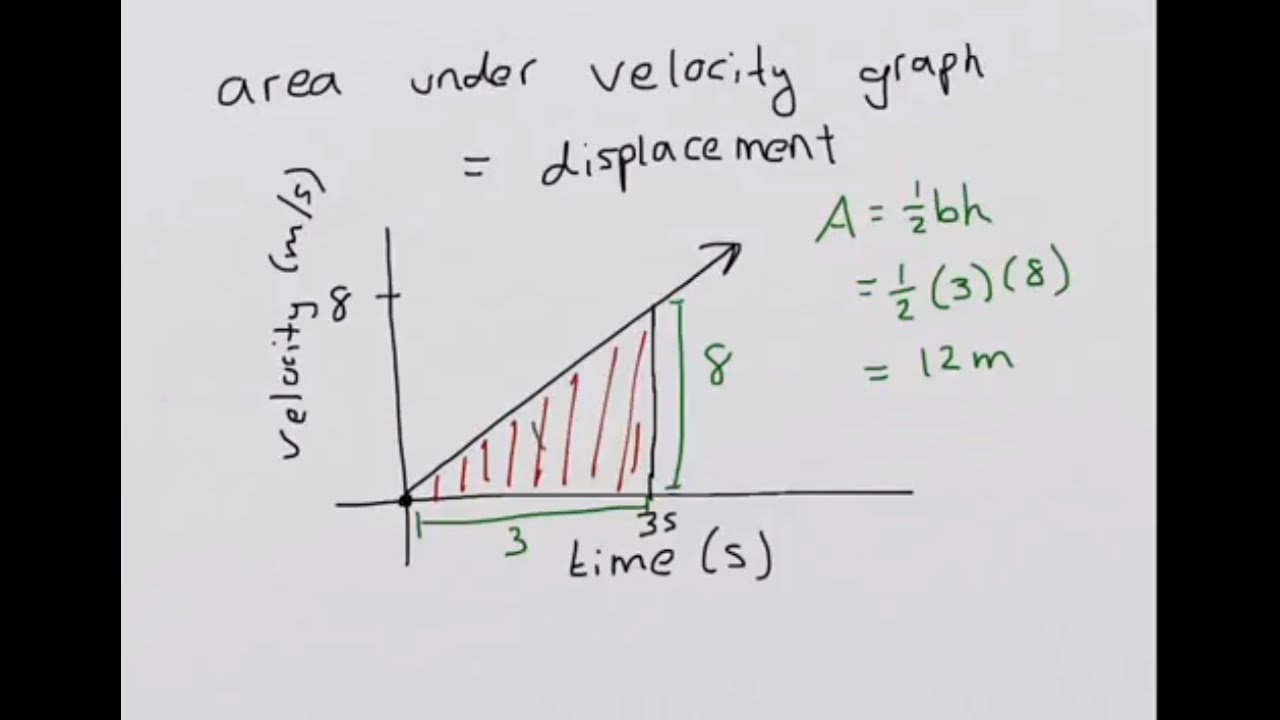 area under velocity graph
= displacement
velocity (m/s)
8
A = ½bh
= ½ (3)(8)
= 12m
8
3
3s
time (s)